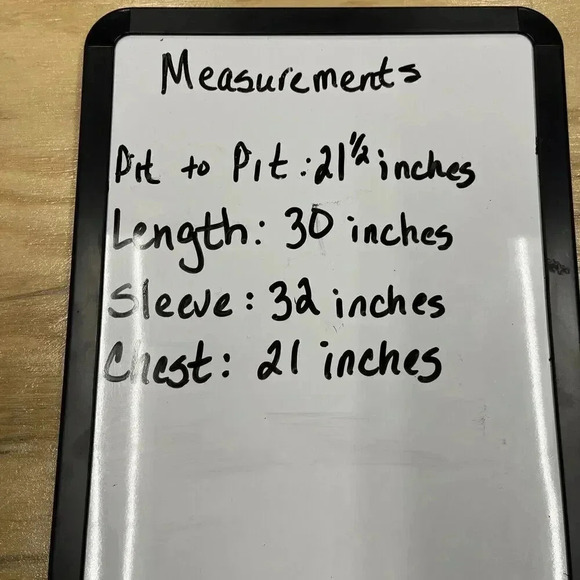 Measurements
Pit to Pit: 21 1/2 inches
Length: 30 inches
Sleeve: 32 inches
Chest: 21 inches